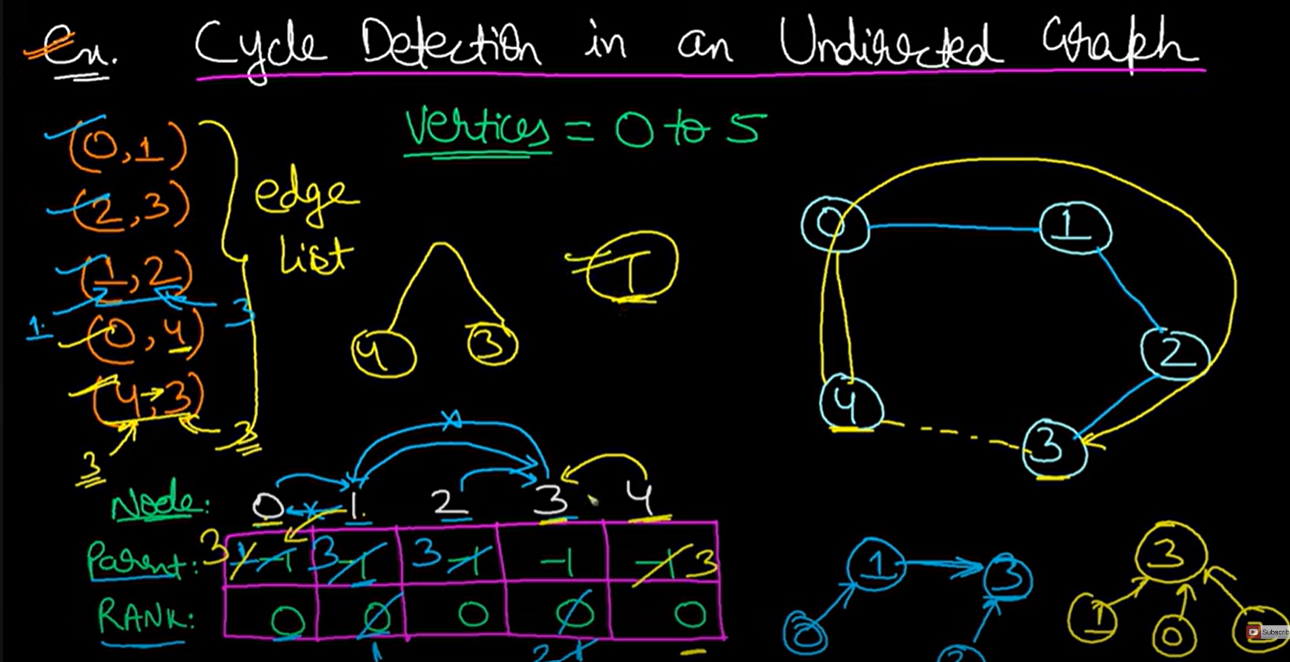 Ex. Cycle Detection in an Undirected Graph
Vertices = 0 to 5
(0,1)
(2,3)
edge
list
(1,2)
1 3
(0,4)
(4→3)
3 3
4 3
1
0 1
2
4
3
Node: 0 1. 2 3 4
Parent: 3 1 -1 3 -1 3 -1 -1 -1 3
RANK: 0 0 0 0 0
1 2 1
1 3
0
3
1 0
Subscrib